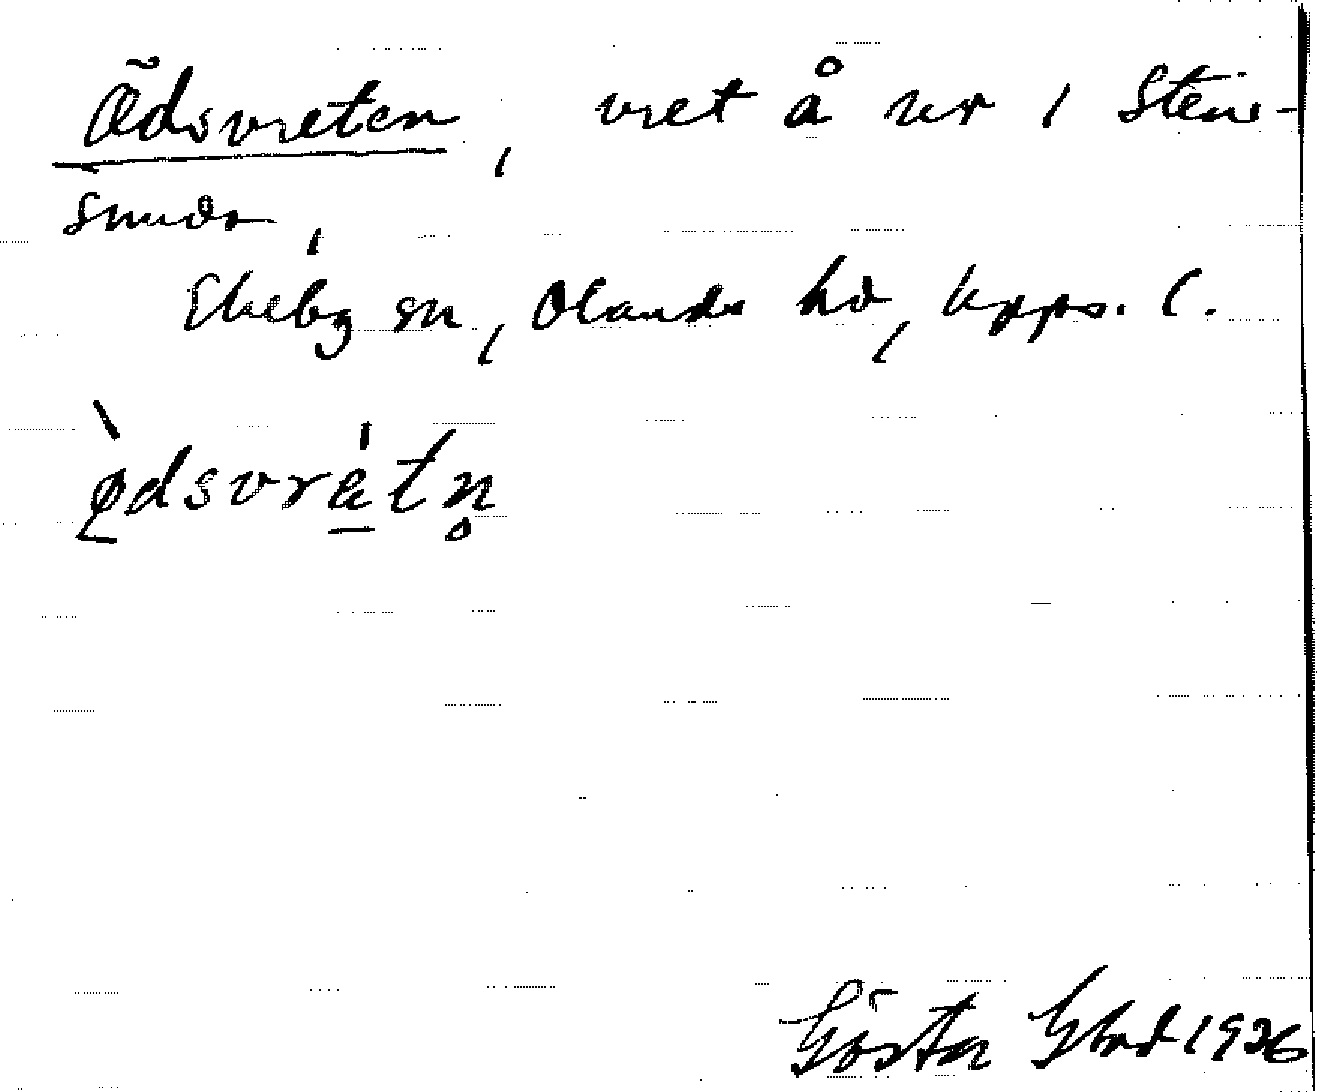 Ödsvreten, vret å nr 1 Stens-
sunda,
Ekeby sn, Olands hd, Upps. l.
ödsvrètn
Gösta 1936